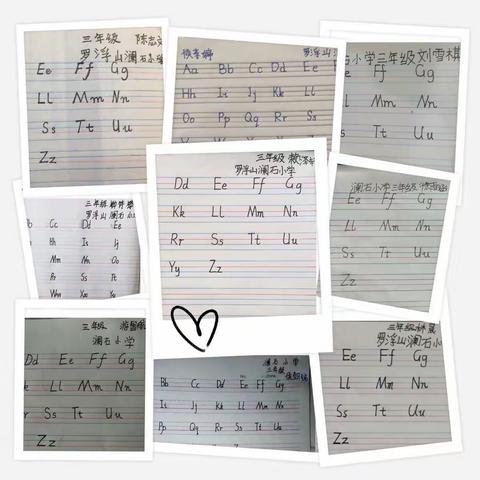 三年级
罗浮山澜石小
Ee Ff Gg
Ll Mm Nn
Ss Tt Uu
Zz
Aa Bb Cc Dd Ee
Hh Ii Jj Kk Ll
Oo Pp Qq Rr Ss
小学三年级刘雪棋
Ff Gg
Ll Mm Nn
Ss Tt Uu
三年级
罗浮山澜石小学
Dd Ee Ff Gg
Kk Ll Mm Nn
Rr Ss Tt Uu
Yy Zz
三年级
罗浮山澜石小
Cc Dd Ee
Ii Jj
Mm Nn Oo
Rr Ss Tt
Ww Xx
澜石小学三年级
Ee Ff Gg
Ll Mm Nn
Ss Tt Uu
Zz
三年级
澜石小学
Dd Ee Ff Gg
Ll Mm Nn
Ss Tt Uu
Zz
澜石小学
三年级
Bb Cc Dd Ee Ff Gg
Ii Jj Kk Ll Mm Nn
Pp Qq Rr Ss Tt Uu
三年级
罗浮山澜石小
Ee Ff Gg
Ll Mm Nn
Ss Tt Uu
Zz